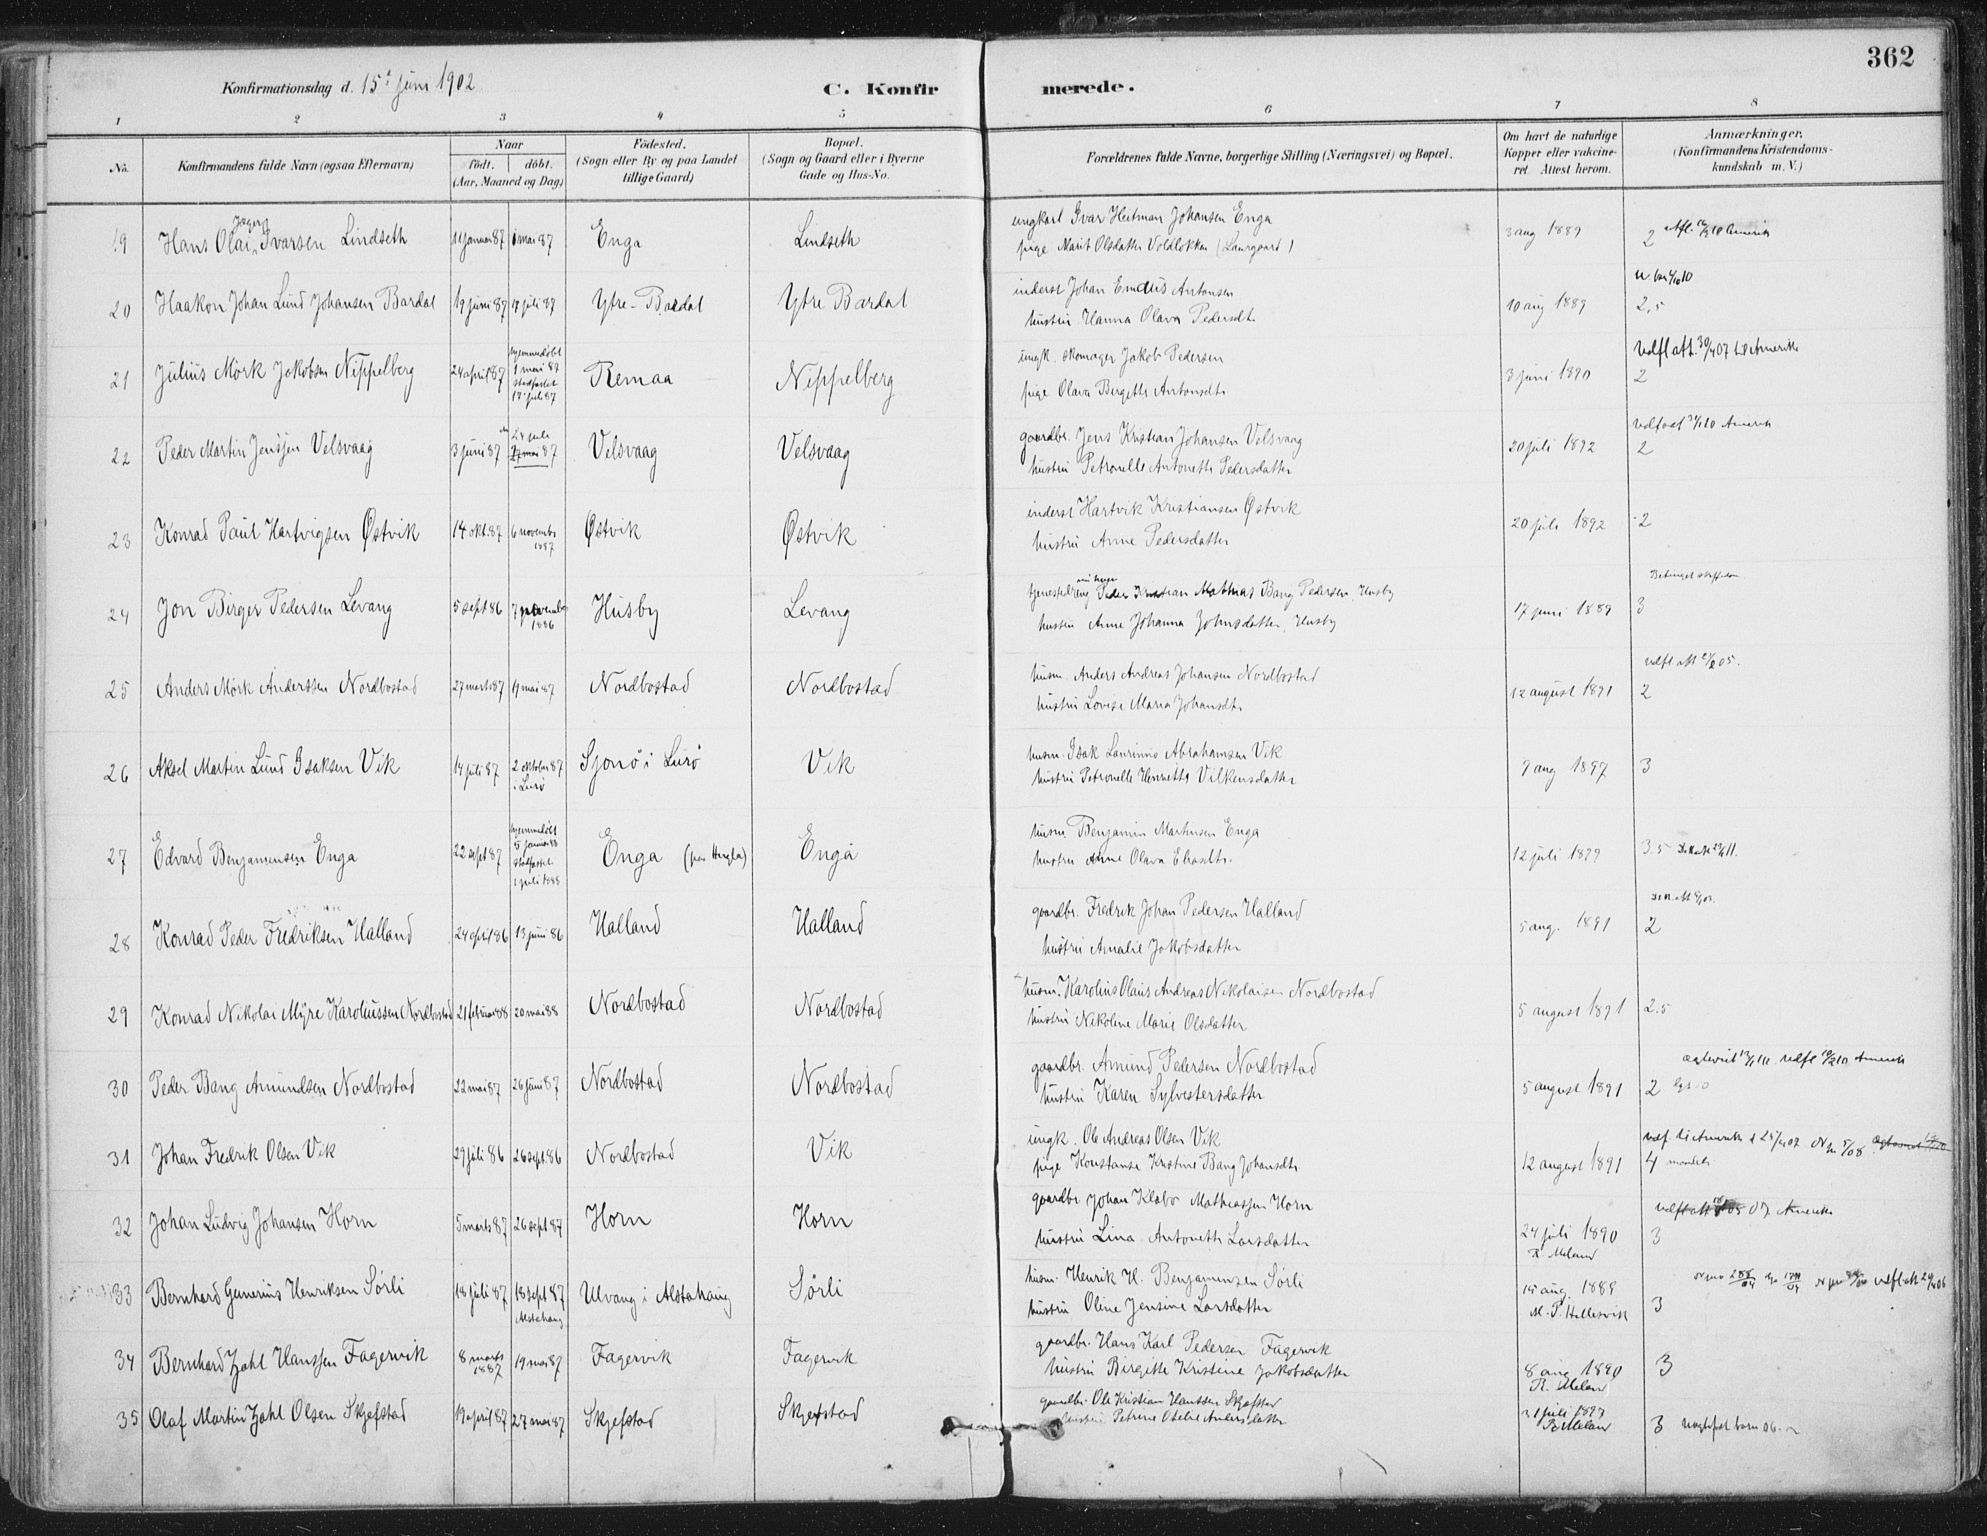 362
Konfirmationsdag d. 15de juni 1902
C. Konfirmerede.
1 2 3 4 5 6 7 8
No. Konfirmandens fulde Navn (ogsaa Efternavn) Naar födt. döbt. (Aar, Maaned og Dag) Födested. (Sogn eller By og paa Landet tillige Gaard) Bopæl. (Sogn og Gaard eller i Byerne Gade og Hus-No. Forældrenes fulde Navne, borgerlige Stilling (Næringsvei) og Bopæl. Om havt de naturlige Kopper eller vakcineret. Attest herom. Anmærkninger. (Konfirmandens Kristendomskundskab m. V.)
19 Hans Olai Jæger Ivarsen Lindseth 11 januar 87 mai 87 Enga Lindseth ungkarl Ivar Heitman Johansen Enga 3 aug 1889 2
pige Marit Olsdatter Voldlokken (Laurgaard)
20 Haakon Johan Lund Johansen Bardal 19 juni 87 17 juli 87 Ytre-Bardal Ytre Bardal inderst Johan Emaus Antonsen 10 aug 1889 2,5
hustru Hanna Olava Pedersdt.
21 Julius Mörk Jakobsen Nippelberg 24 april 87 hjemmedöbt 1 mai 87 stadfæstet 17 juli 87 Remaa Nippelberg ungk. skomager Jakob Pedersen 3 juni 1890 vedfl att. 30/4 07 til Amerika 2
pige Olava Bergitte Antonsdt.
22 Peder Martin Jenssen Velsvaag 3 juni 87 24 juli 87 Velsvaag Velsvaag gaardbr. Jens Kristian Johansen Velsvaag 20 juli 1892 2
hustru Petronelle Antonette Pedersdatter
23 Konrad Paul Hartvigsen Østvik 14 okt. 87 6 november 1887 Østvik Østvik inderst Hartvik Kristiansen Østvik 20 juli 1892 2
hustru Anne Pedersdatter
24 Jon Birger Pedersen Levang 5 sept 86 7 november 1886 Husby Levang tjenestedreng Peder Kristian Mathias Bang Pedersen Husby 17 juni 1889 3
hustru Anne Johanna Johnsdatter, Husby
25 Anders Mörk Anderssen Nordbostad 27 marts 87 19 mai 87 Nordbostad Nordbostad husm. Anders Andreas Johansen Nordbostad 12 august 1891 2
hustru Lovise Maria Johansdt.
26 Aksel Martin Lund Isaksen Vik 14 juli 87 2 oktober 87 i Lurö Sjonö i Lurö Vik husm. Isak Laurinus Abrahamsen Vik 9 aug 1897 3
hustru Petronelle Henrette Vilkensdatter
27 Edvard Benjaminsen Enga 22 sept 87 hjemmedöbt 5 januar 88 stadfæstet 1 juli 1888 Enga (paa Hugla) Enga husm. Benjamin Martinsen Enga 12 juli 1899 3.5
hustru Anne Olava Eliasdt.
28 Konrad Peder Fredriksen Halland 24 april 86 13 juni 86 Halland Halland gaardbr. Fredrik Johan Pedersen Halland 5 aug. 1891 2
hustru Amalie Jakobsdatter
29 Konrad Nikolai Myre Karoliussen Nordbostad 21 februar 88 20 mai 88 Nordbostad Nordbostad husm. Karolius Olaus Andreas Nikolaisen Nordbostad 5 august 1891 2.5
hustru Nikoline Marie Olsdatter
30 Peder Bang Amundsen Nordbostad 22 mai 87 26 juni 87 Nordbostad Nordbostad gaardbr. Amund Pedersen Nordbostad 5 august 1891 2
hustru Karen Sylvestersdatter
31 Johan Fredrik Olsen Vik 29 juli 86 26 sept. 86 Nordbostad Vik ungk. Ole Andreas Olsen Vik 12 august 1891 4
pige Konstanse Kristine Bang Johansdt.
32 Johan Ludvig Johansen Horn 5 marts 87 26 sept 87 Horn Horn gaardbr Johan Klabo Mathiassen Horn 24 juli 1890 R. Meland 3
hustru Lina Antonette Larsdatter
33 Bernhard Gunerius Henriksen Sörli 18 juli 87 18 sept 87 Alstahaug Ulvang i Alstahaug Sörli husm. Henrik H. Benjaminsen Sörli 15 aug. 1889 3
hustru Oline Jensine Larsdatter
34 Bernhard Zahl Hanssen Fagervik 8 marts 1887 19 mai 87 Fagervik Fagervik gaardbr. Hans Karl Pedersen Fagervik 8 aug 1890 R. Meland 3
hustru Birgitte Kristine Jakobsdatter
35 Olaf Martin Zahl Olsen Skjefstad 19 april 87 27 mai 87 Skjefstad Skjefstad gaardbr. Ole Kristian Hanssen Skjefstad 31 juli 1897 R. Meland 3
hustru Petrine Otelie Andersdatter